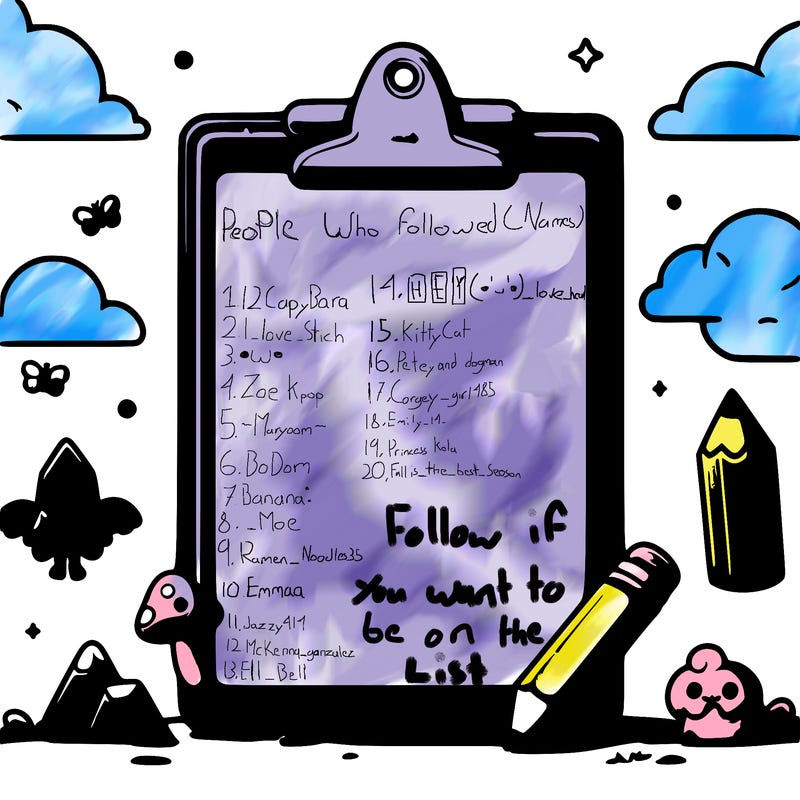 PeoPle Who followed (Names)
1.12CapyBara
2.I_love_Stich
3.•W•
4.Zoe Kpop
5.~Maryoom~
6.BoDom
7 Banana:
8._Moe
9.Ramen_Noodles35
10 Emmaa
11.Jazzy414
12 McKenna_gonzulez
13.Ell_Bell
14.HEY(•'ᴗ'•)_love_hah
15.KittyCat
16.Petey and dogman
17.Corgey_girl485
18.Emily_14-
19.Princess Kola
20,Fall is_the_best_Season
Follow if
you want to
be on the
List